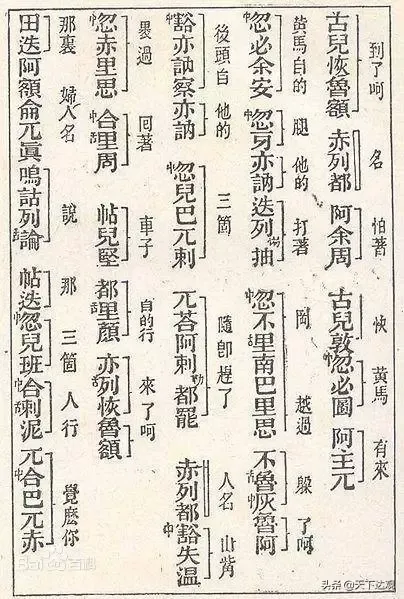 到了呵 名 怕著 快 黃馬 有來
古兒恢魯額 赤列都 阿余周 古兒敦中忽必圖 阿主兀
黃馬自的 腿 他的 打著 岡 越過 躲了呵
中忽必余安 中忽牙亦訥 迭列抽 中忽不里南巴里思 不魯灰 阿
後頭自 他的 三箇 隨即趕了 人名 山觜
中豁亦訥察亦訥 中忽兒巴兀剌 兀荅阿剌都罷 赤列都中豁失溫
過 回著 車子 自的行 來了呵
中忽赤里思 中合里周 帖兒堅 都里顏 亦列恢魯額
那裏 婦人名 說 那三箇人行 覺麽你
田迭阿額侖兀眞嗚詁列論 帖迭中忽兒班中合剌泥 兀中合巴兀赤
Bai百科
頭條@天下达观